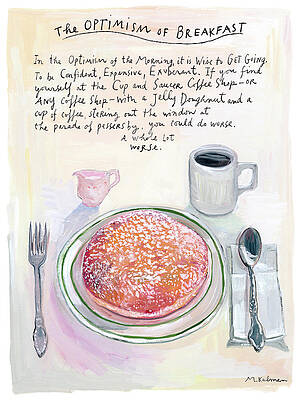 The OPTIMISM OF BREAKFAST
In the Optimism of the Morning, it is Wise to GET GOING.
To be Confident, Expansive, Exuberant. If you find
yourself at the Cup and Saucer Coffee Shop—OR
ANY Coffee Shop—with a Jelly Doughnut and a
cup of coffee, staring out the window at
the parade of passersby, you could do worse.
A whole Lot
worse.
M. Kalman